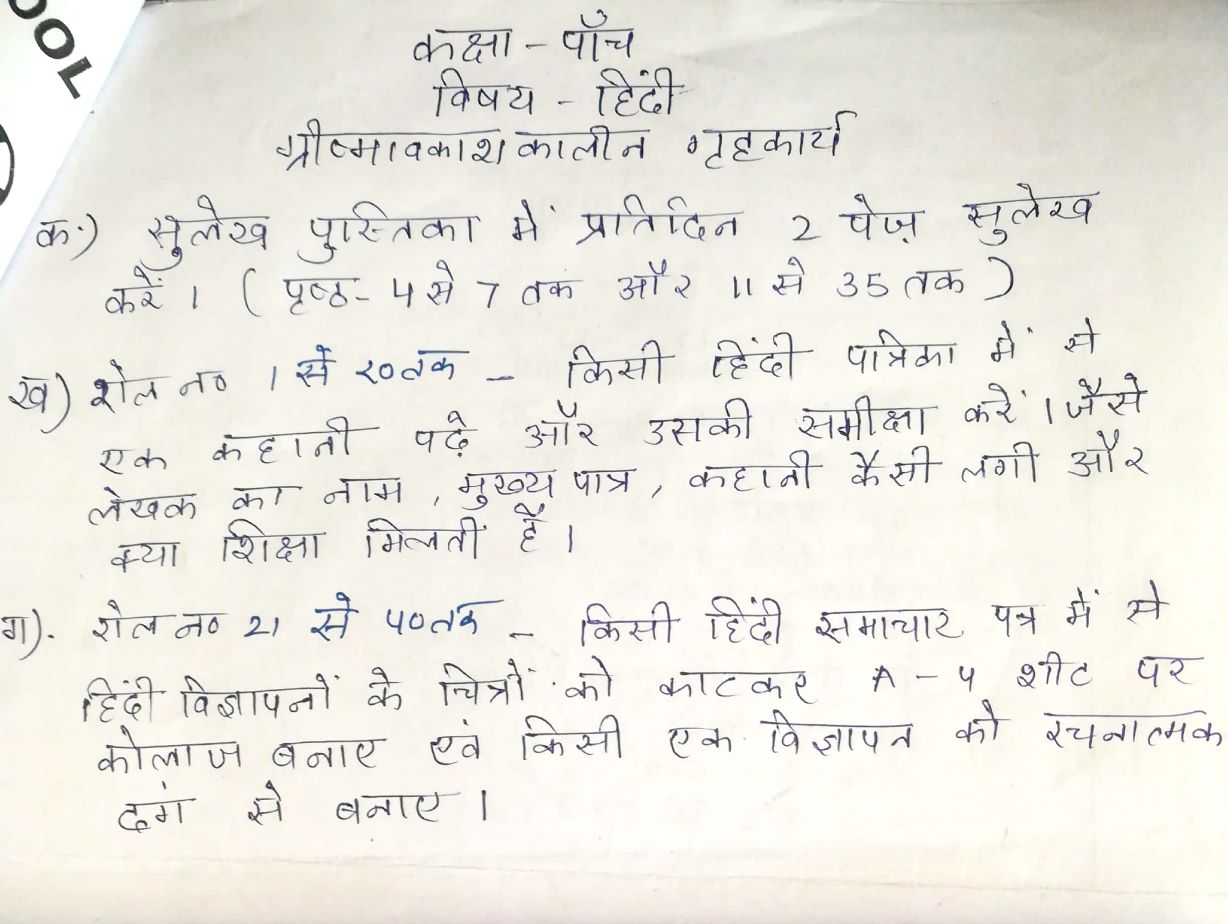 OOL
कक्षा - पाँच
विषय - हिंदी
ग्रीष्मावकाशकालीन गृहकार्य
क.) सुलेख पुस्तिका में प्रतिदिन 2 पेज़ सुलेख
करें । ( पृष्ठ - 4 से 7 तक और 11 से 35 तक )
ख) रोल न० 1 से 20 तक - किसी हिंदी पत्रिका में से
एक कहानी पढ़े और उसकी समीक्षा करें । जैसे
लेखक का नाम , मुख्य पात्र , कहानी कैसी लगी और
क्या शिक्षा मिलती है ।
ग). रोल न० 21 से 40 तक - किसी हिंदी समाचार पत्र में से
हिंदी विज्ञापनों के चित्रों को काटकर A - 4 शीट पर
कोलाज बनाए एवं किसी एक विज्ञापन को रचनात्मक
ढंग से बनाए ।